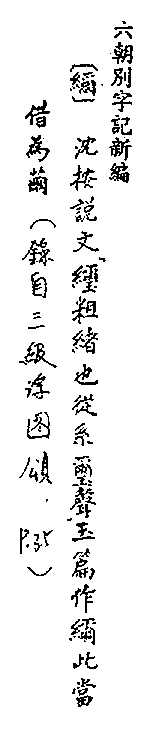 六朝別字記新編
〔繃〕沈按說文、纆粗緒也從糸璽聲玉篇作繃此當
借為繭（錄自三級浮圖頌．P.35）